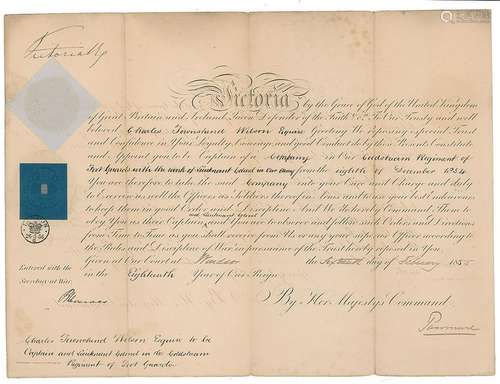 Victoria R
Victoria by the Grace of God of the United Kingdom
of Great Britain and Ireland Queen Defender of the Faith &c. To Our Trusty and well
beloved Charles Townshend Wilson Esquire Greeting We reposing especial Trust
and Confidence in Your Loyalty, Courage, and good Conduct do by these Presents Constitute
and Appoint you to be Captain of a Company in Our Coldstream Regiment of
Foot Guards with the rank of Lieutenant Colonel in Our Army from the eighth of December 1854
You are therefore to take the said Company into your Care and Charge and duly
to Exercise as well the Officers as Soldiers thereof in Arms and to use your best endeavours
to keep them in good Order and Discipline And We do hereby Command them to
and Lieutenant Colonel
obey You as their Captain and You are to observe and follow such Orders and Directions
from Time to Time as you shall receive from Us or any your superior Officer according to
the Rules and Discipline of War in pursuance of the Trust hereby reposed in You
Given at Our Court at Windsor the day of February 1855
in the Eighteenth Year of Our Reign
Entered with the
Secretary at War
By Her Majesty's Command
Panmure
Charles Townshend Wilson Esquire to be
Captain and Lieutenant Colonel in the Coldstream
Regiment of Foot Guards